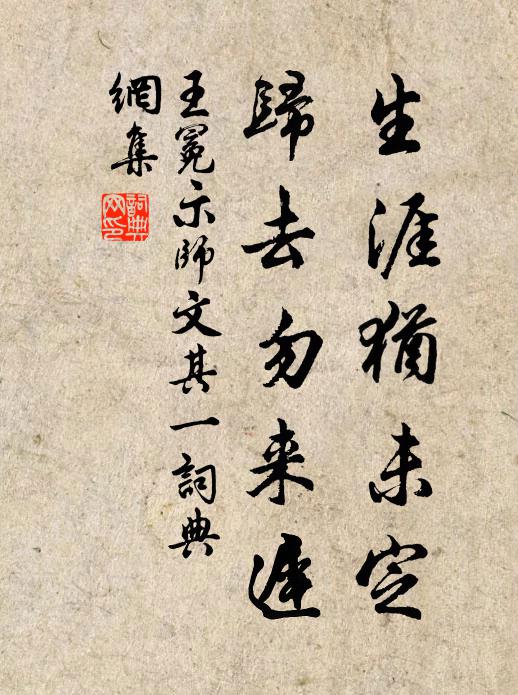 生涯猶未定
歸去勿来遲
王冕示師文其一詞典
網集
詞典網印